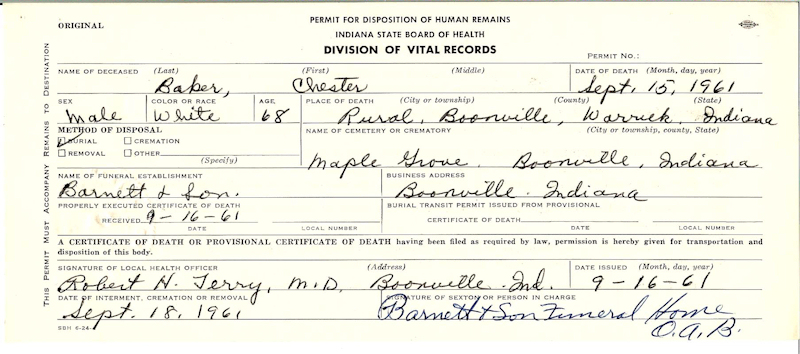 ORIGINAL
PERMIT FOR DISPOSITION OF HUMAN REMAINS
INDIANA STATE BOARD OF HEALTH
DIVISION OF VITAL RECORDS
PERMIT NO.:
THIS PERMIT MUST ACCOMPANY REMAINS TO DESTINATION
NAME OF DECEASED (Last) (First) (Middle) DATE OF DEATH (Month, day, year)
Baker, Chester Sept. 15, 1961
SEX COLOR OR RACE AGE PLACE OF DEATH (City or township) (County) (State)
Male White 68 Rural, Boonville, Warrick, Indiana
METHOD OF DISPOSAL NAME OF CEMETERY OR CREMATORY (City or township, county, State)
BURIAL CREMATION
REMOVAL OTHER
(Specify)
Maple Grove. Boonville, Indiana
NAME OF FUNERAL ESTABLISHMENT BUSINESS ADDRESS
Barnett & Son. Boonville. Indiana
PROPERLY EXECUTED CERTIFICATE OF DEATH BURIAL TRANSIT PERMIT ISSUED FROM PROVISIONAL
RECEIVED 9-16-61 CERTIFICATE OF DEATH
DATE LOCAL NUMBER DATE LOCAL NUMBER
A CERTIFICATE OF DEATH OR PROVISIONAL CERTIFICATE OF DEATH having been filed as required by law, permission is hereby given for transportation and
disposition of this body.
SIGNATURE OF LOCAL HEALTH OFFICER (Address) DATE ISSUED (Month, day, year)
Robert H. Terry, M.D. Boonville. Ind. 9-16-61
DATE OF INTERMENT, CREMATION OR REMOVAL SIGNATURE OF SEXTON OR PERSON IN CHARGE
Sept. 18, 1961 Barnett & Son Funeral Home
O.A.B.
SBH 6-24